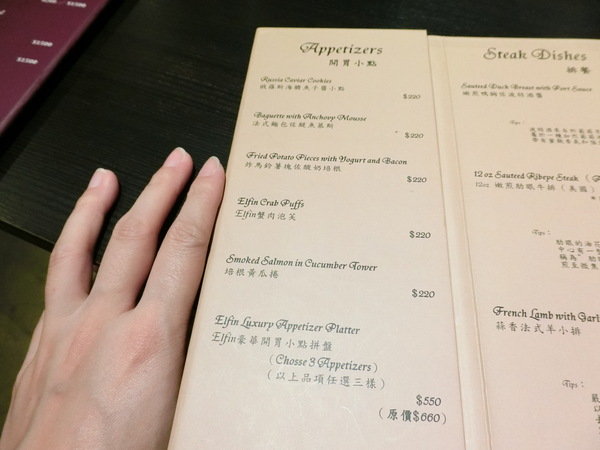 Appetizers
開胃小點
Russia Caviar Cookies
俄羅斯海鱘魚子醬小點
$220
Baguette with Anchovy Mousse
法式麵包佐鯷魚慕斯
$220
Fried Potato Pieces with Yogurt and Bacon
炸馬鈴薯塊佐酸奶培根
$220
Elfin Crab Puffs
Elfin蟹肉泡芙
$220
Smoked Salmon in Cucumber Tower
培根黃瓜捲
$220
Elfin Luxury Appetizer Platter
Elfin豪華開胃小點拼盤
(Chosse 3 Appetizers)
(以上品項任選三樣)
$550
(原價$660)
Steak Dishes
排餐
Sauteed Duck Breast with Port Sauce
Tips:
12 oz Sauteed Ribeye Steak
12oz 嫩煎肋眼牛排(美國)
Tips:
肋眼的油花
French Lamb with Garl
蒜香法式羊小排
Tips: